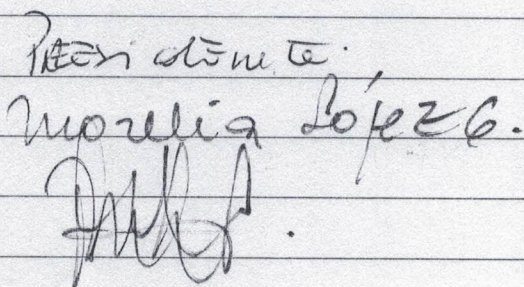 Presidente.
Morelia López G.